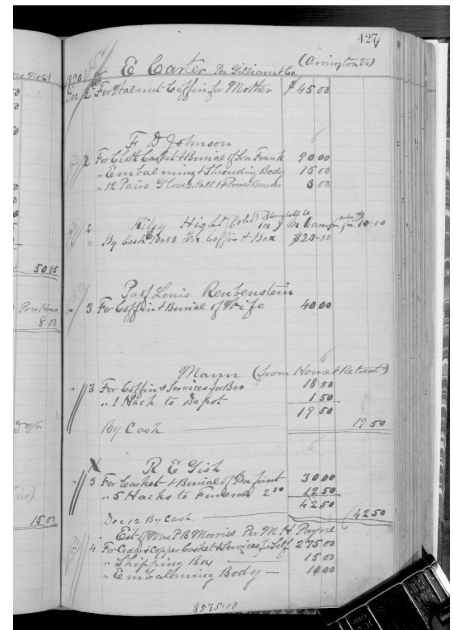 427
E Carter Per Gilliam & Co (Arrington Va)
1890
Dec 2 For Walnut Coffin for Mother $45 00
F D Johnson
2 For Cloth Casket & Burial of Son Frank 90 00
" Embalming & Shrouding Body 15 00
" 12 Pairs Gloves, Pall & Flower 6 00
2 Riley Hight (Cold)
" By Cash Bros For Coffin & Box $20 00
Prof Louis Reubenstein
" 3 For Coffin & Burial of Wife 40 00
Mann (from Home & Retreat)
" 3 For Coffin & Services for Bro 18 00
" 1 Hack to Depot 1 50
19 50
By Cash 19 50
X R E Gish
3 For Casket & Burial of Infant 30 00
" 5 Hacks to funeral 2 50 12 50
42 50
Dec 12 By Cash 42 50
Est of Mrs P B Morriss Per M H Payne
4 For Cedar & Copper Casket & Services for Self 275 00
" Shipping Box 15 00
" Embalming Body —
$575.00
50 85
8 50
15 00